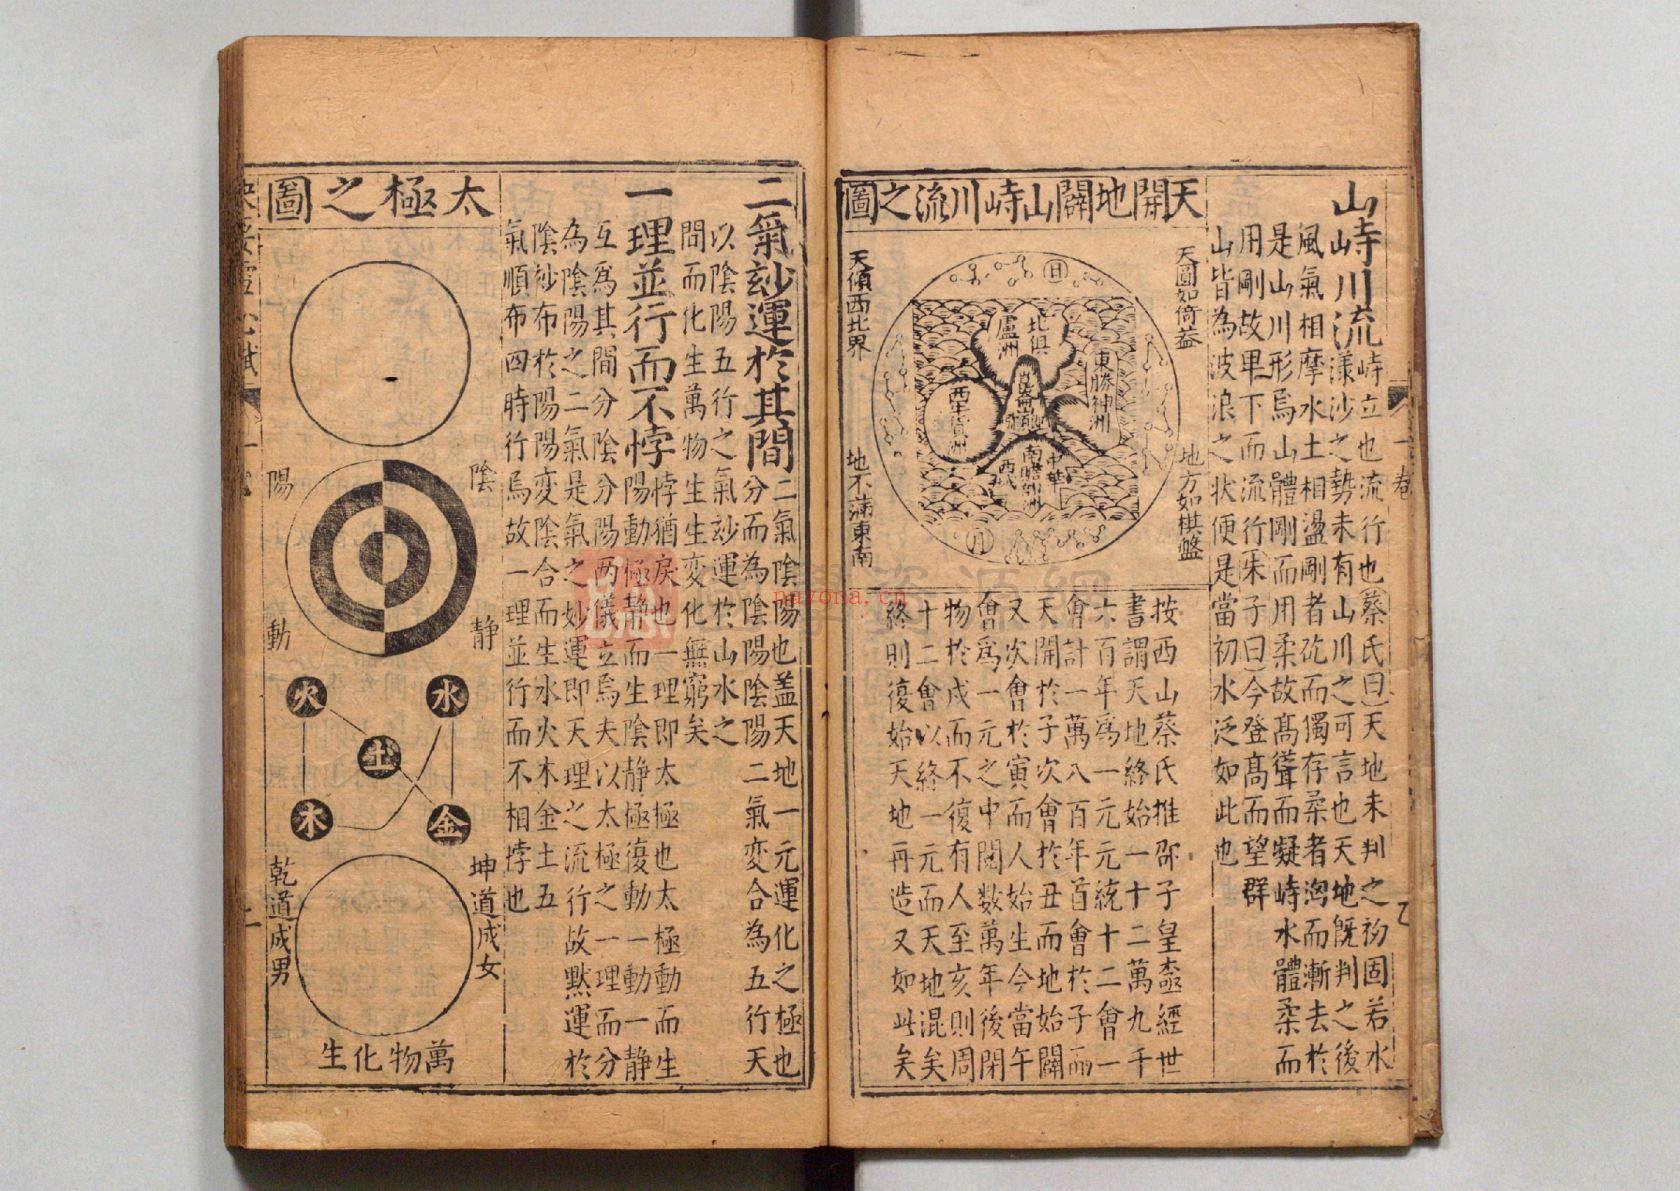 山峙川流
峙立也流行也蔡氏曰天地未判之初固若水
漾沙之勢未有山川之可言也天地既判之後
風氣相摩水土相盪剛者屹而獨存柔者洶而漸去於
是山川形焉山體剛而用柔故髙聳而凝峙水體柔而
用剛故畢下而流行朱子曰今登髙而望群
山皆為波浪之状便是當初水泛如此也
天開地闢山峙川流之圖
天圓如倚盖
地方如棋盤
天傾西北界
地不滿東南
日
北俱
盧洲
東勝神洲
崑崙
西牛貨洲
南贍部洲
中華
月
按西山蔡氏推邵子皇極經世
書謂天地終始一十二萬九千
六百年爲一元元統十二會一
會計一萬八百年首會於子而
天開於子次會於丑而地始闢
又次會於寅而人始生今當午
會爲一元之中閱数萬年後閉
物於戍而不復有人至亥則周
十二會以終一元而天地混矣
終則復始天地再造又如此矣
二氣玅運於其間
二氣陰陽也盖天地一元運化之極也
分而為陰陽陰陽二氣変合為五行天
以陰陽五行之氣玅運於山水之
間而化生萬物生生変化無窮矣
一理並行而不悖
悖猶戾也一理即太極也太極動而生
陽動極静而生陰静極復動一動一静
互爲其間分陰分陽两儀立焉夫以太極之一理而分
為陰陽之二氣是氣之妙運即天理之流行故黙運於
陰玅布於陽陽変陰合而生水火木金土五
氣順布四時行焉故一理並行而不相悖也
太極之圖
陰
静
陽
動
水
火
土
金
木
坤道成女
乾道成男
萬物化生
nayona.cn